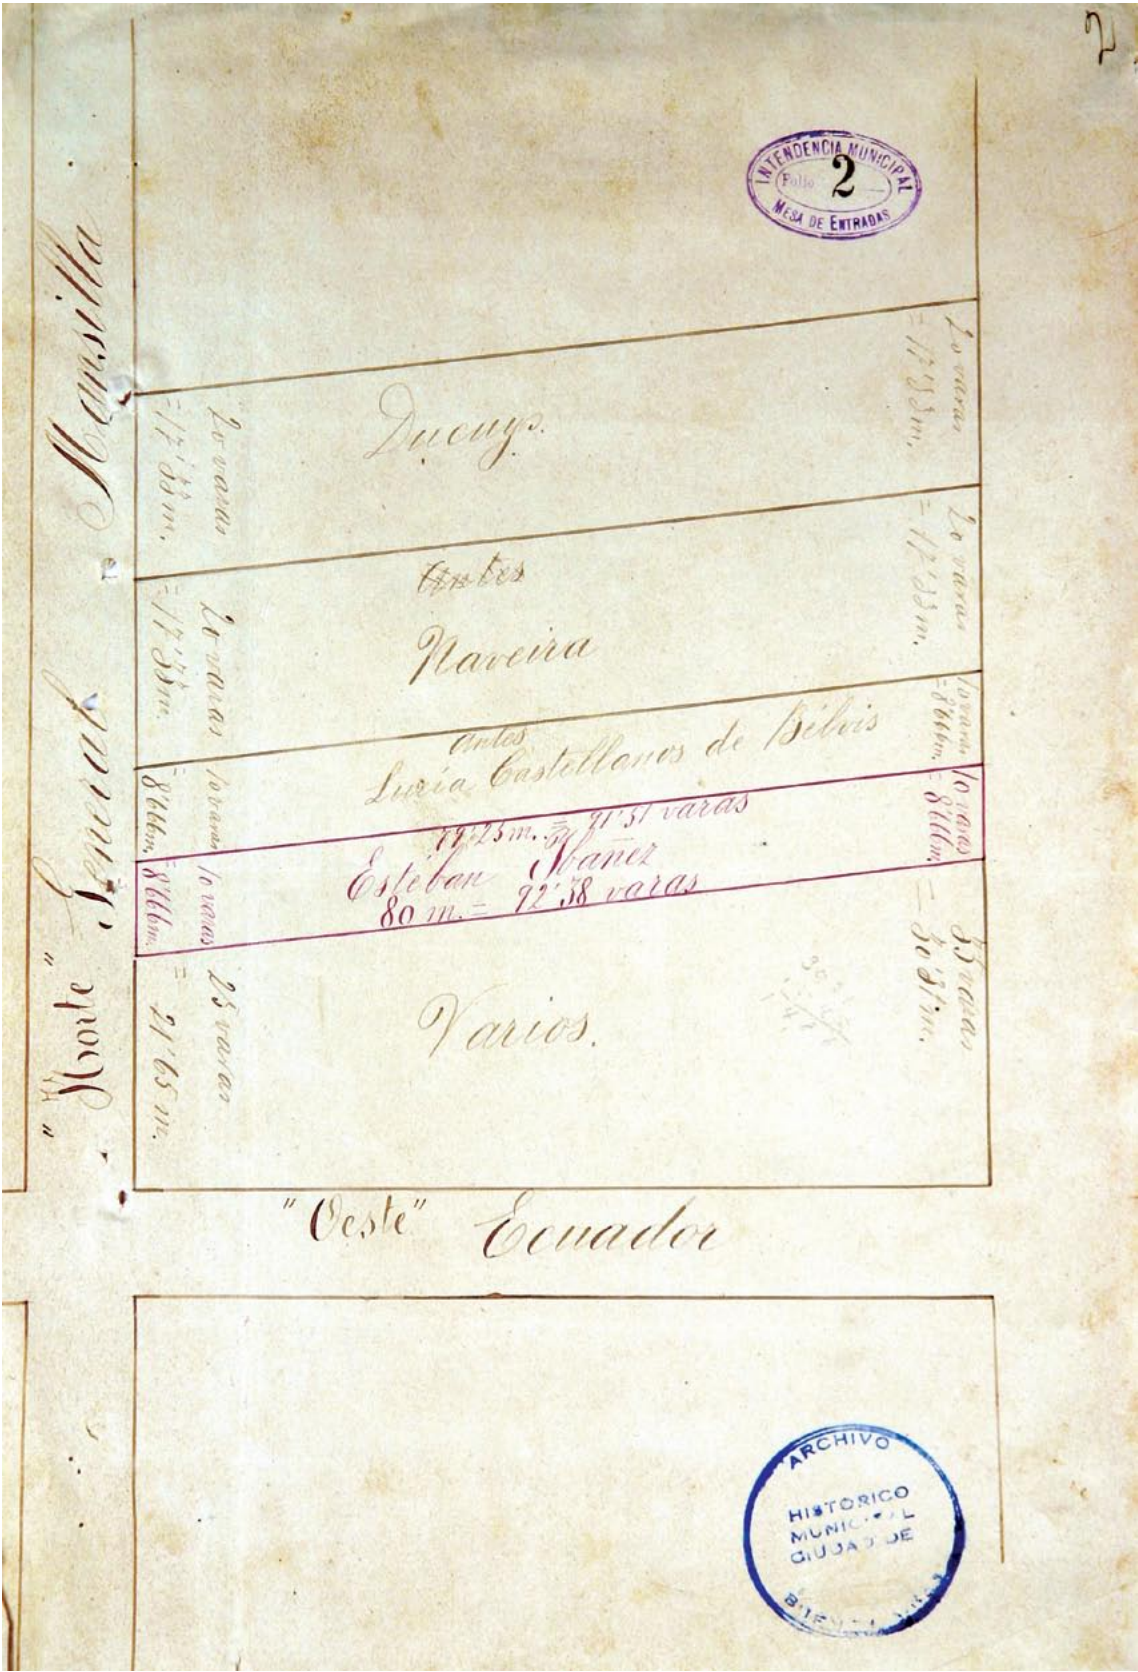 2
INTENDENCIA MUNICIPAL
Folio 2
MESA DE ENTRADAS
"Norte" General Mansilla
20 varas
= 17'33 m.
Ducuys.
20 varas
= 17'33 m.
20 varas
= 17'33 m.
Antes
Naveira
20 varas
= 17'33 m.
10 varas
= 8'666m.
antes
Lucía Castellanos de Bilvis
10 varas
= 8'666m.
10 varas
= 8'666m.
79'25 m. = 91'51 varas
Estéban Ibañez
80 m. = 92'38 varas
10 varas
= 8'666m.
25 varas
= 21'65 m.
Varios.
35 varas
= 30'31 m.
"Oeste" Ecuador
ARCHIVO
HISTORICO
MUNICIPAL
CIUDAD DE
BUENOS AIRES